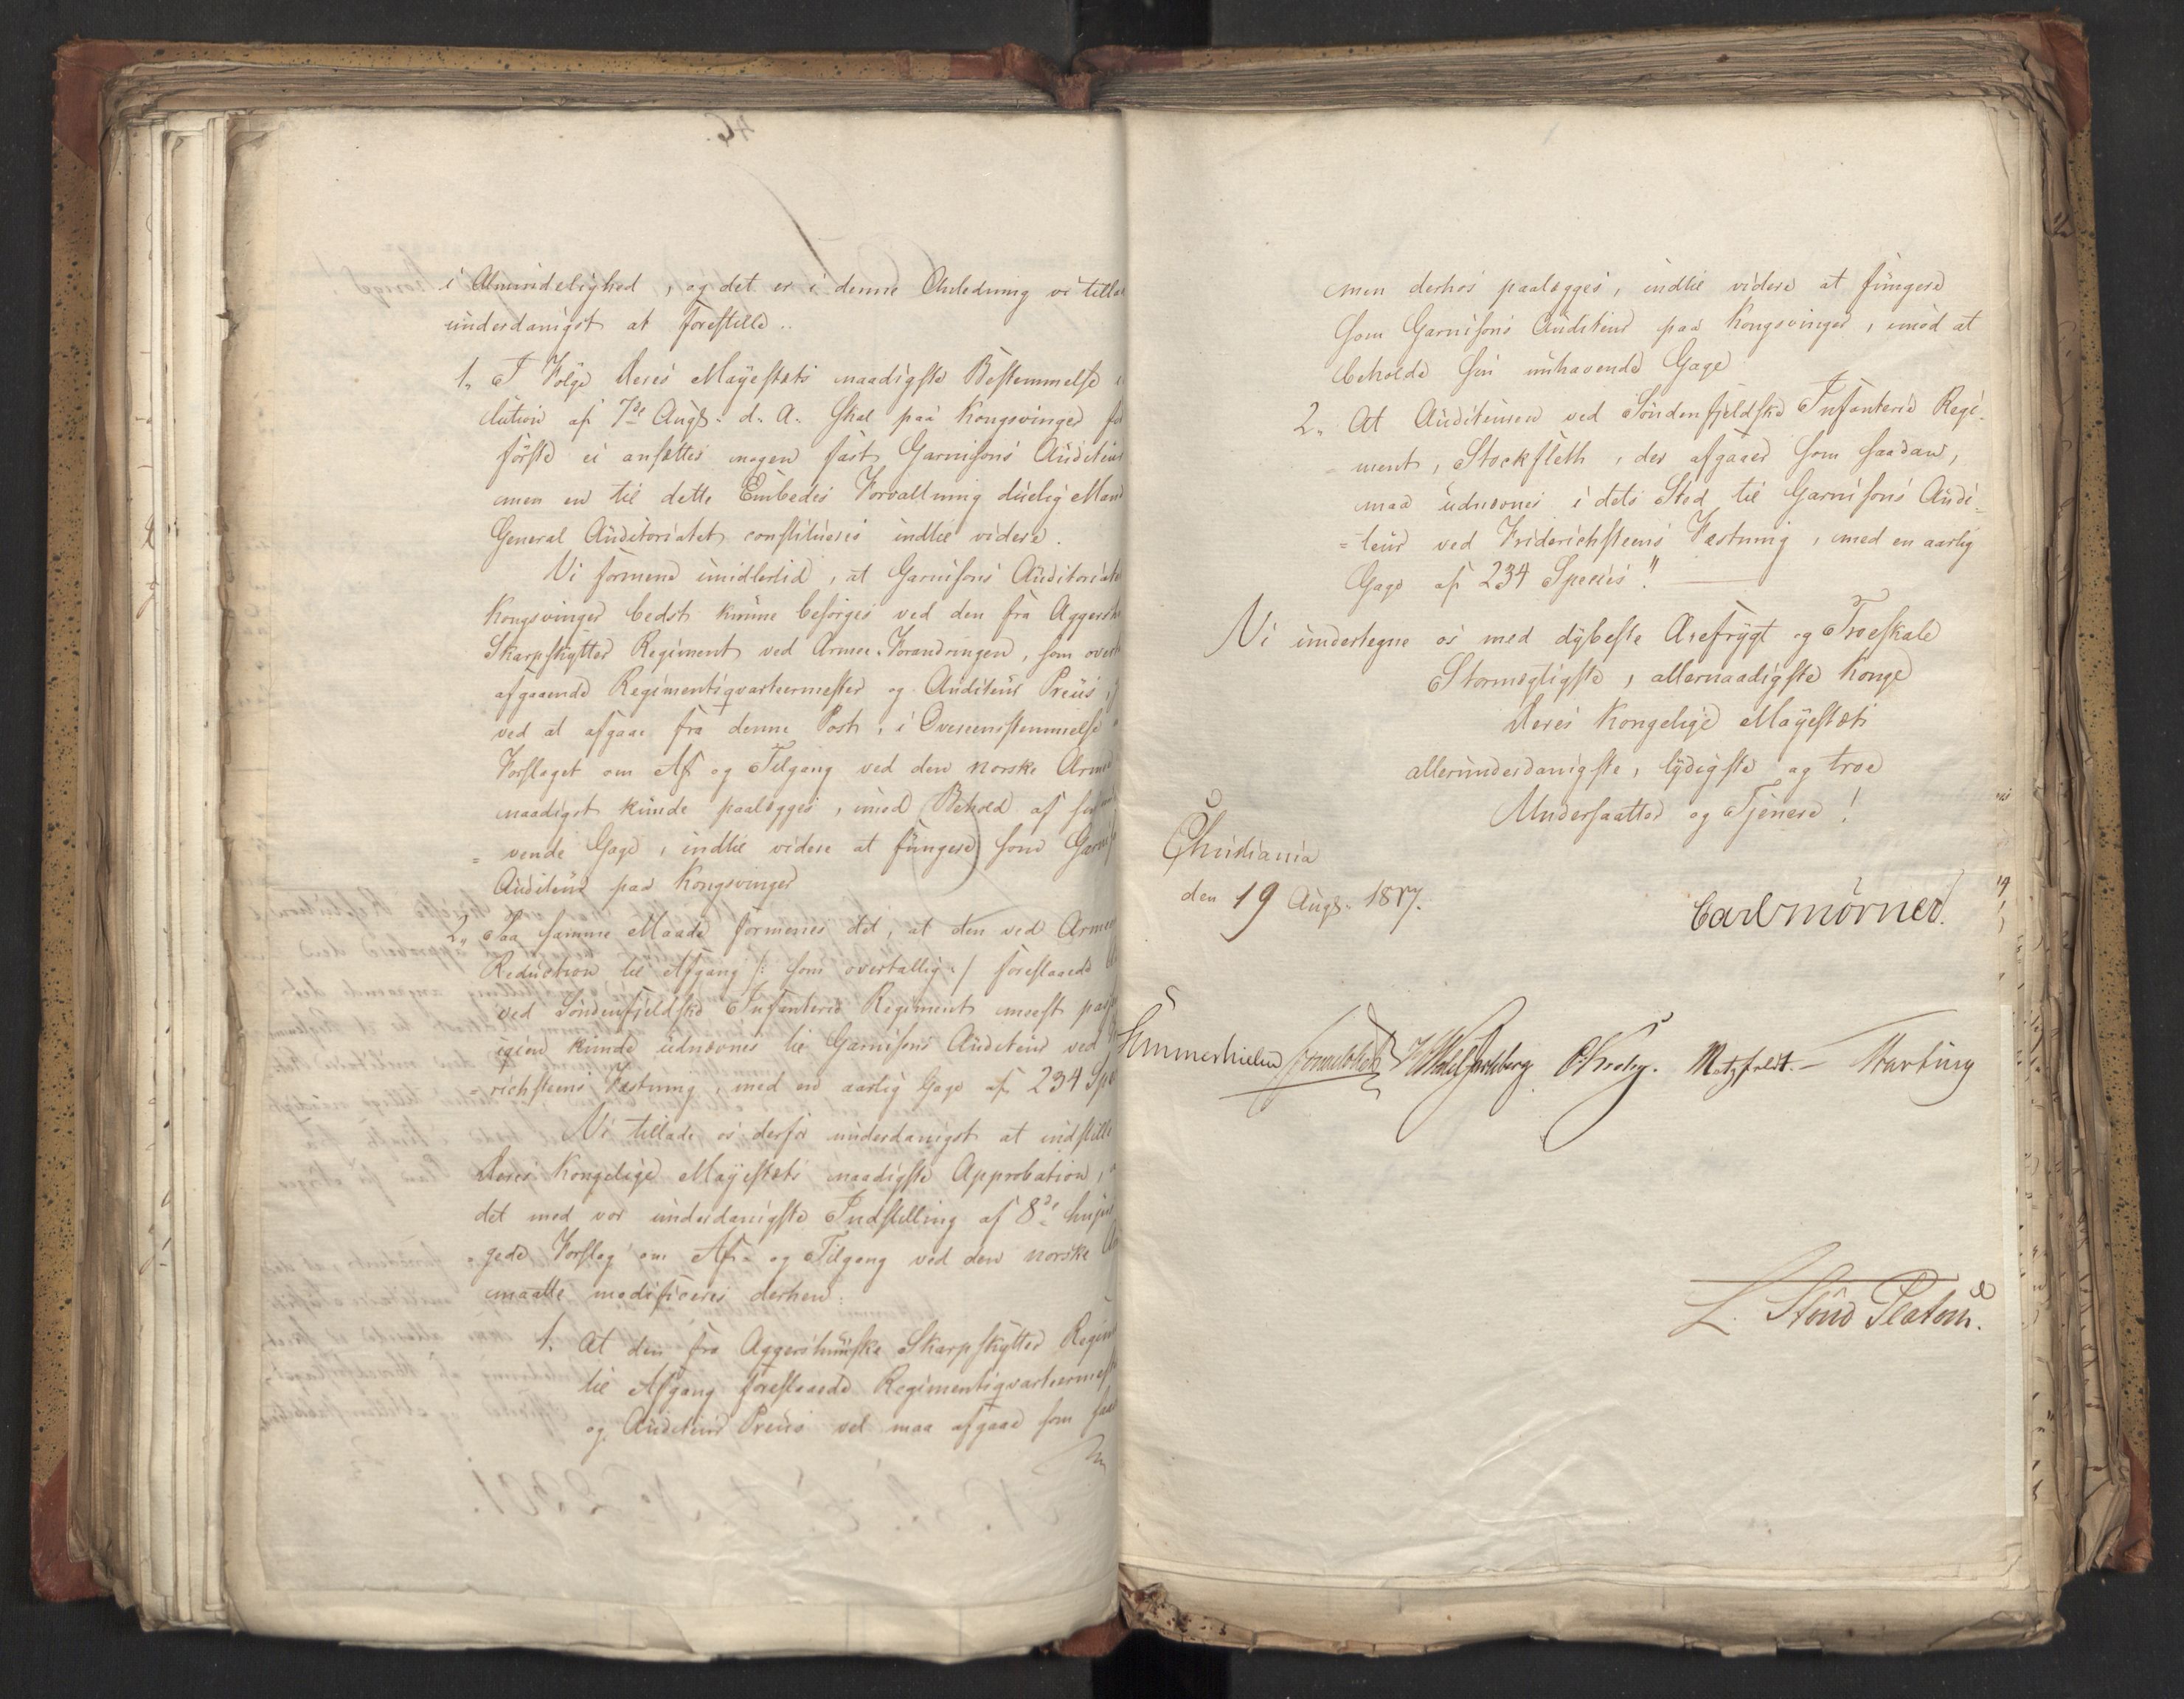 i Almindelighed, og det er i denne Anledning vi
underdanigst at forestille..
1, I Følge Deres Mayestæts naadigste Bestemmelse
lution af 7de Augs. d. A. skal paa Kongsvinger
første ei ansættes nogen fast Garnisons Auditeur
men en til dette Embedes Forvaltning duelig Mand
General Auditoriatet constitueres indtil videre.
Vi formene imidlertid, at Garnisons
Kongsvinger bedst kunne besørges ved den fra
Skarpskytter Regiment ved Armee-Forandringen, som
afgaaende Regimentsqvarteermester og Auditeur Preus,
ved at afgaae fra denne Post, i Overeensstemmelse
Forslaget om Af og Tilgang ved den norske
naadigst kunde paalægges, imod Behold af
= vende Gage, indtil videre at fungere som
Auditeur paa Kongsvinger
2, Paa samme Maade formenes det, at den ved
Reduction til Afgang /: som overtallig :/ foreslaaede
ved Søndenfjeldske Infanterie Regiment meest
igien kunde udnævnes til Garnisons Auditeur ved
= richsteens Fæstning, med en aarlig Gage af 234
Vi tillade os derfor underdanigst at indstille
Deres Kongelige Mayestæts naadigste Approbation,
det med vor underdanigste Indstilling af 8de
gede Forslag om Af- og Tilgang ved den norske
maatte modificeres derhen:
1. At den fra Aggershuuske Skarpskytter
til Afgang foreslaaede
og Auditeur Preus vel maa afgaae som
men derhos paalægges, indtil videre at fungere
som Garnisons Auditeur paa Kongsvinger, imod at
beholde sin inhavende Gage
2, At Auditeuren ved Søndenfjeldske Infanterie Regi-
= ment, Stockfleth, der afgaaer som saadan,
maa udnævnes i dets Sted til Garnisons Audi-
= teur ved Friderichsteens Fæstning, med en aarlig
Gage af 234 Species"!
Vi undertegne os med dybeste Ærefrygt og Troeskab
Stormægtigste, allernaadigste Konge
Deres Kongelige Mayestæts
allerunderdanigste, lydigste og troe
Undersaatter og Tjenere!
Christiania
den 19 Augs. 1817.
Carl Mörner.
Sommerhielm Motzfeldt. Hartung
L. Stoud Platou.